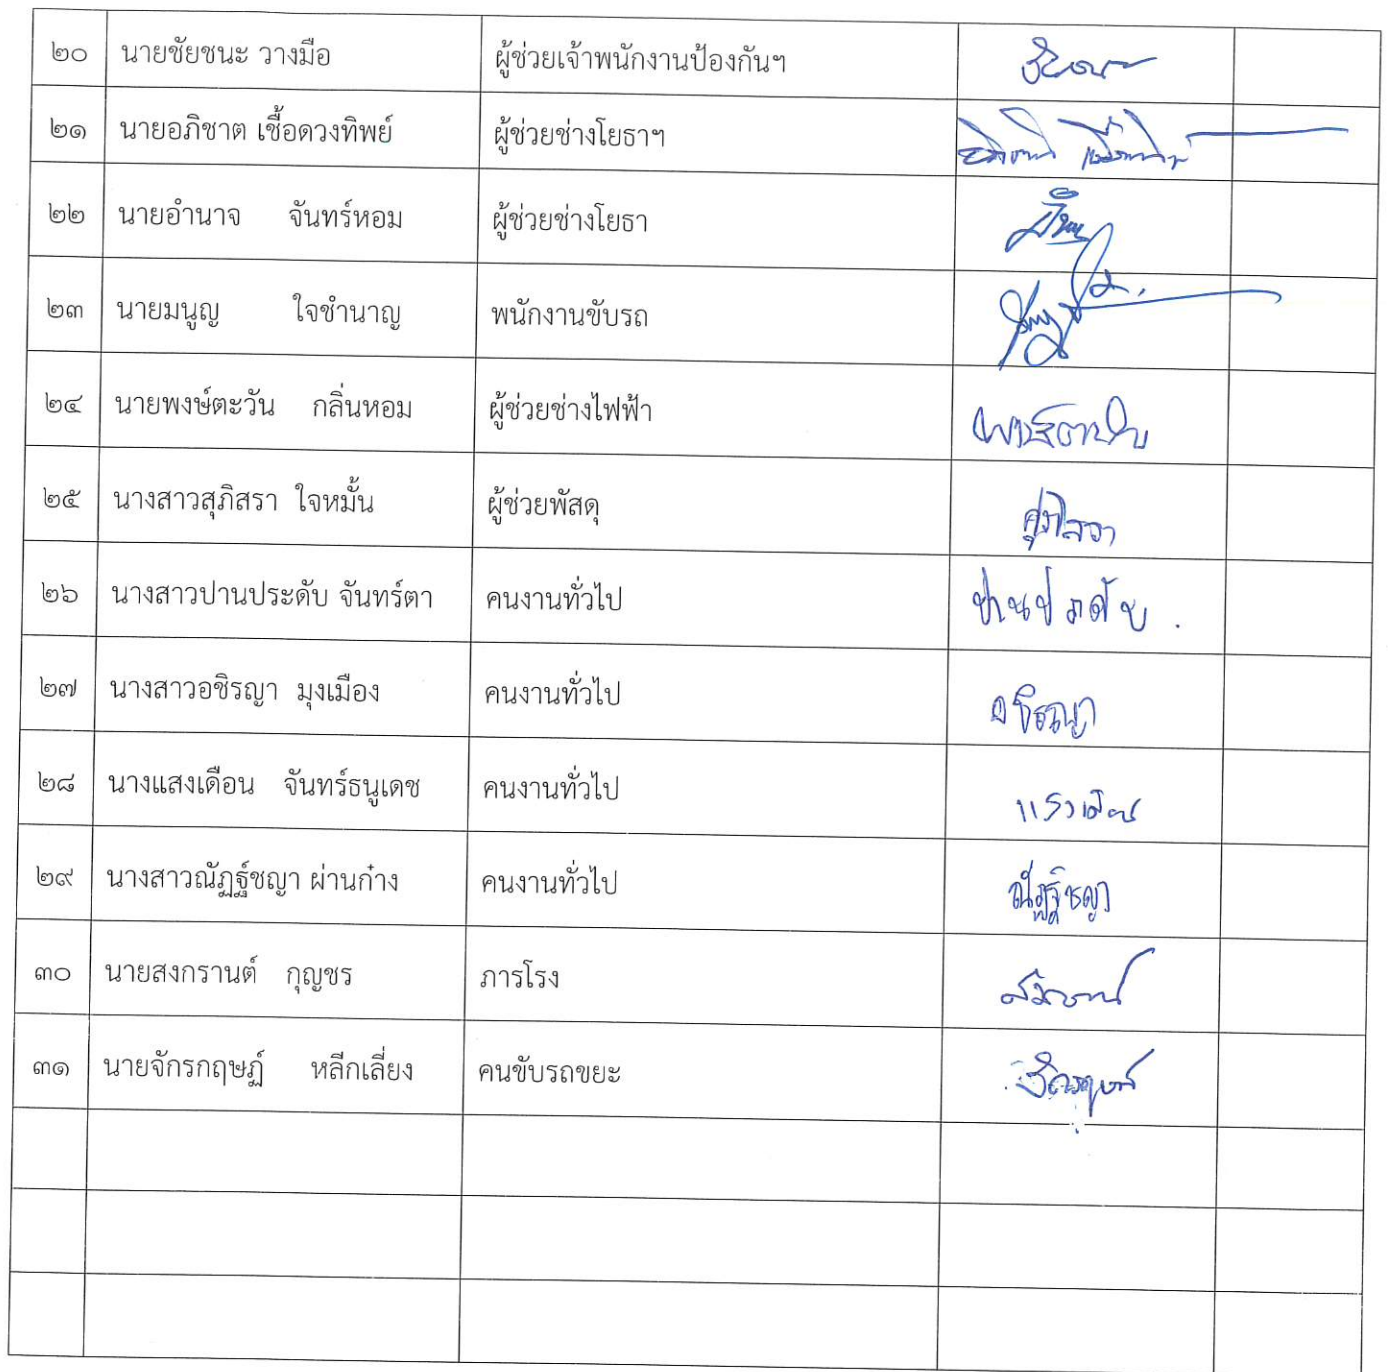 ๒๐ นายชัยชนะ วางมือ ผู้ช่วยเจ้าพนักงานป้องกันฯ
๒๑ นายอภิชาต เชื้อดวงทิพย์ ผู้ช่วยช่างโยธาฯ
๒๒ นายอำนาจ จันทร์หอม ผู้ช่วยช่างโยธา
๒๓ นายมนูญ ใจชำนาญ พนักงานขับรถ
๒๔ นายพงษ์ตะวัน กลิ่นหอม ผู้ช่วยช่างไฟฟ้า
๒๕ นางสาวสุภิสรา ใจหมั้น ผู้ช่วยพัสดุ
๒๖ นางสาวปานประดับ จันทร์ตา คนงานทั่วไป ปานประดับ
๒๗ นางสาวอชิรญา มุงเมือง คนงานทั่วไป อชิรญา
๒๘ นางแสงเดือน จันทร์ธนูเดช คนงานทั่วไป แสงเดือน
๒๙ นางสาวณัฏฐ์ชญา ผ่านก๋าง คนงานทั่วไป ณัฏฐ์ชญา
๓๐ นายสงกรานต์ กุญชร ภารโรง
๓๑ นายจักรกฤษฏ์ หลีกเลี่ยง คนขับรถขยะ